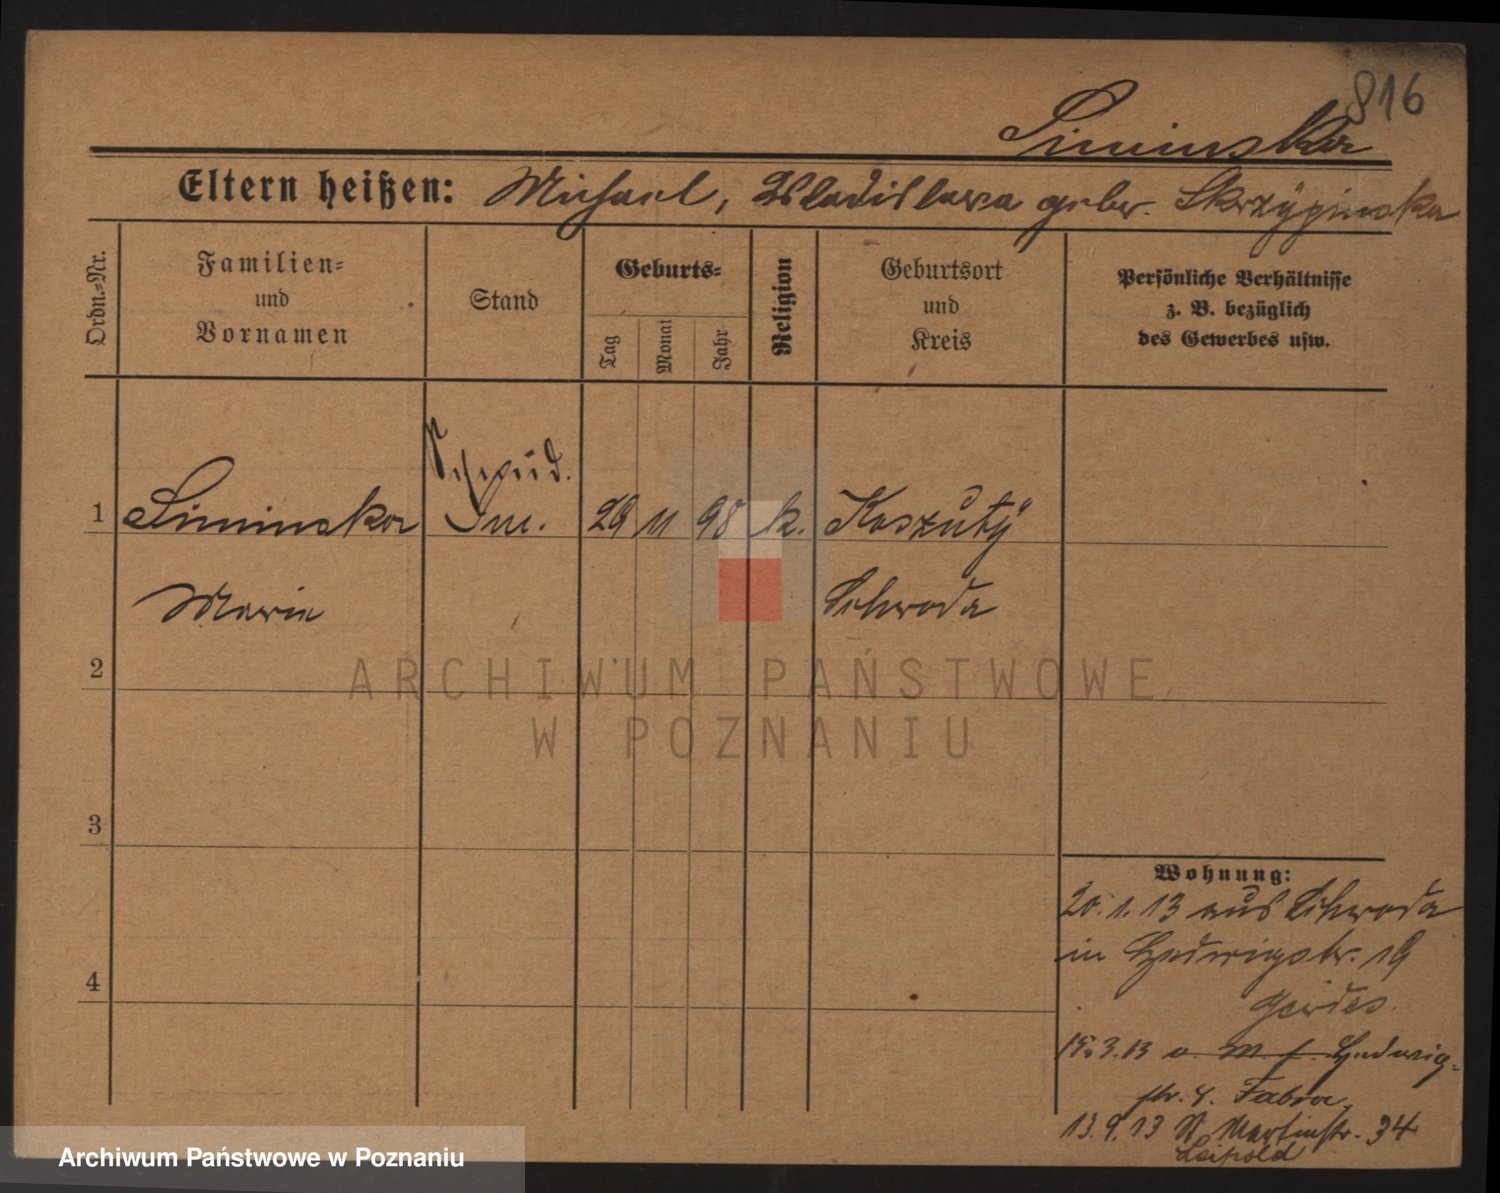 816
Siminska
Eltern heißen: Michael, Wladislawa geber. Skrzypinska
Ordn.=Nr.
Familien=
und
Vornamen
Stand
Geburts=
Tag
Monat
Jahr
Religion
Geburtsort
und
Kreis
Persönliche Verhältnisse
z. B. bezüglich
des Gewerbes usw.
1 Siminska 29 11 98 k. Koszuty
Marie Schroda
2
3
4
Wohnung:
20.1.13 aus Schroda
in Hedwigstr. 19
Gerdes.
15.3.13 Hedwig-
str. 8.
13.9.13 St. Martinstr. 34
Leipold
ARCHIWUM PAŃSTWOWE
W POZNANIU
Archiwum Państwowe w Poznaniu